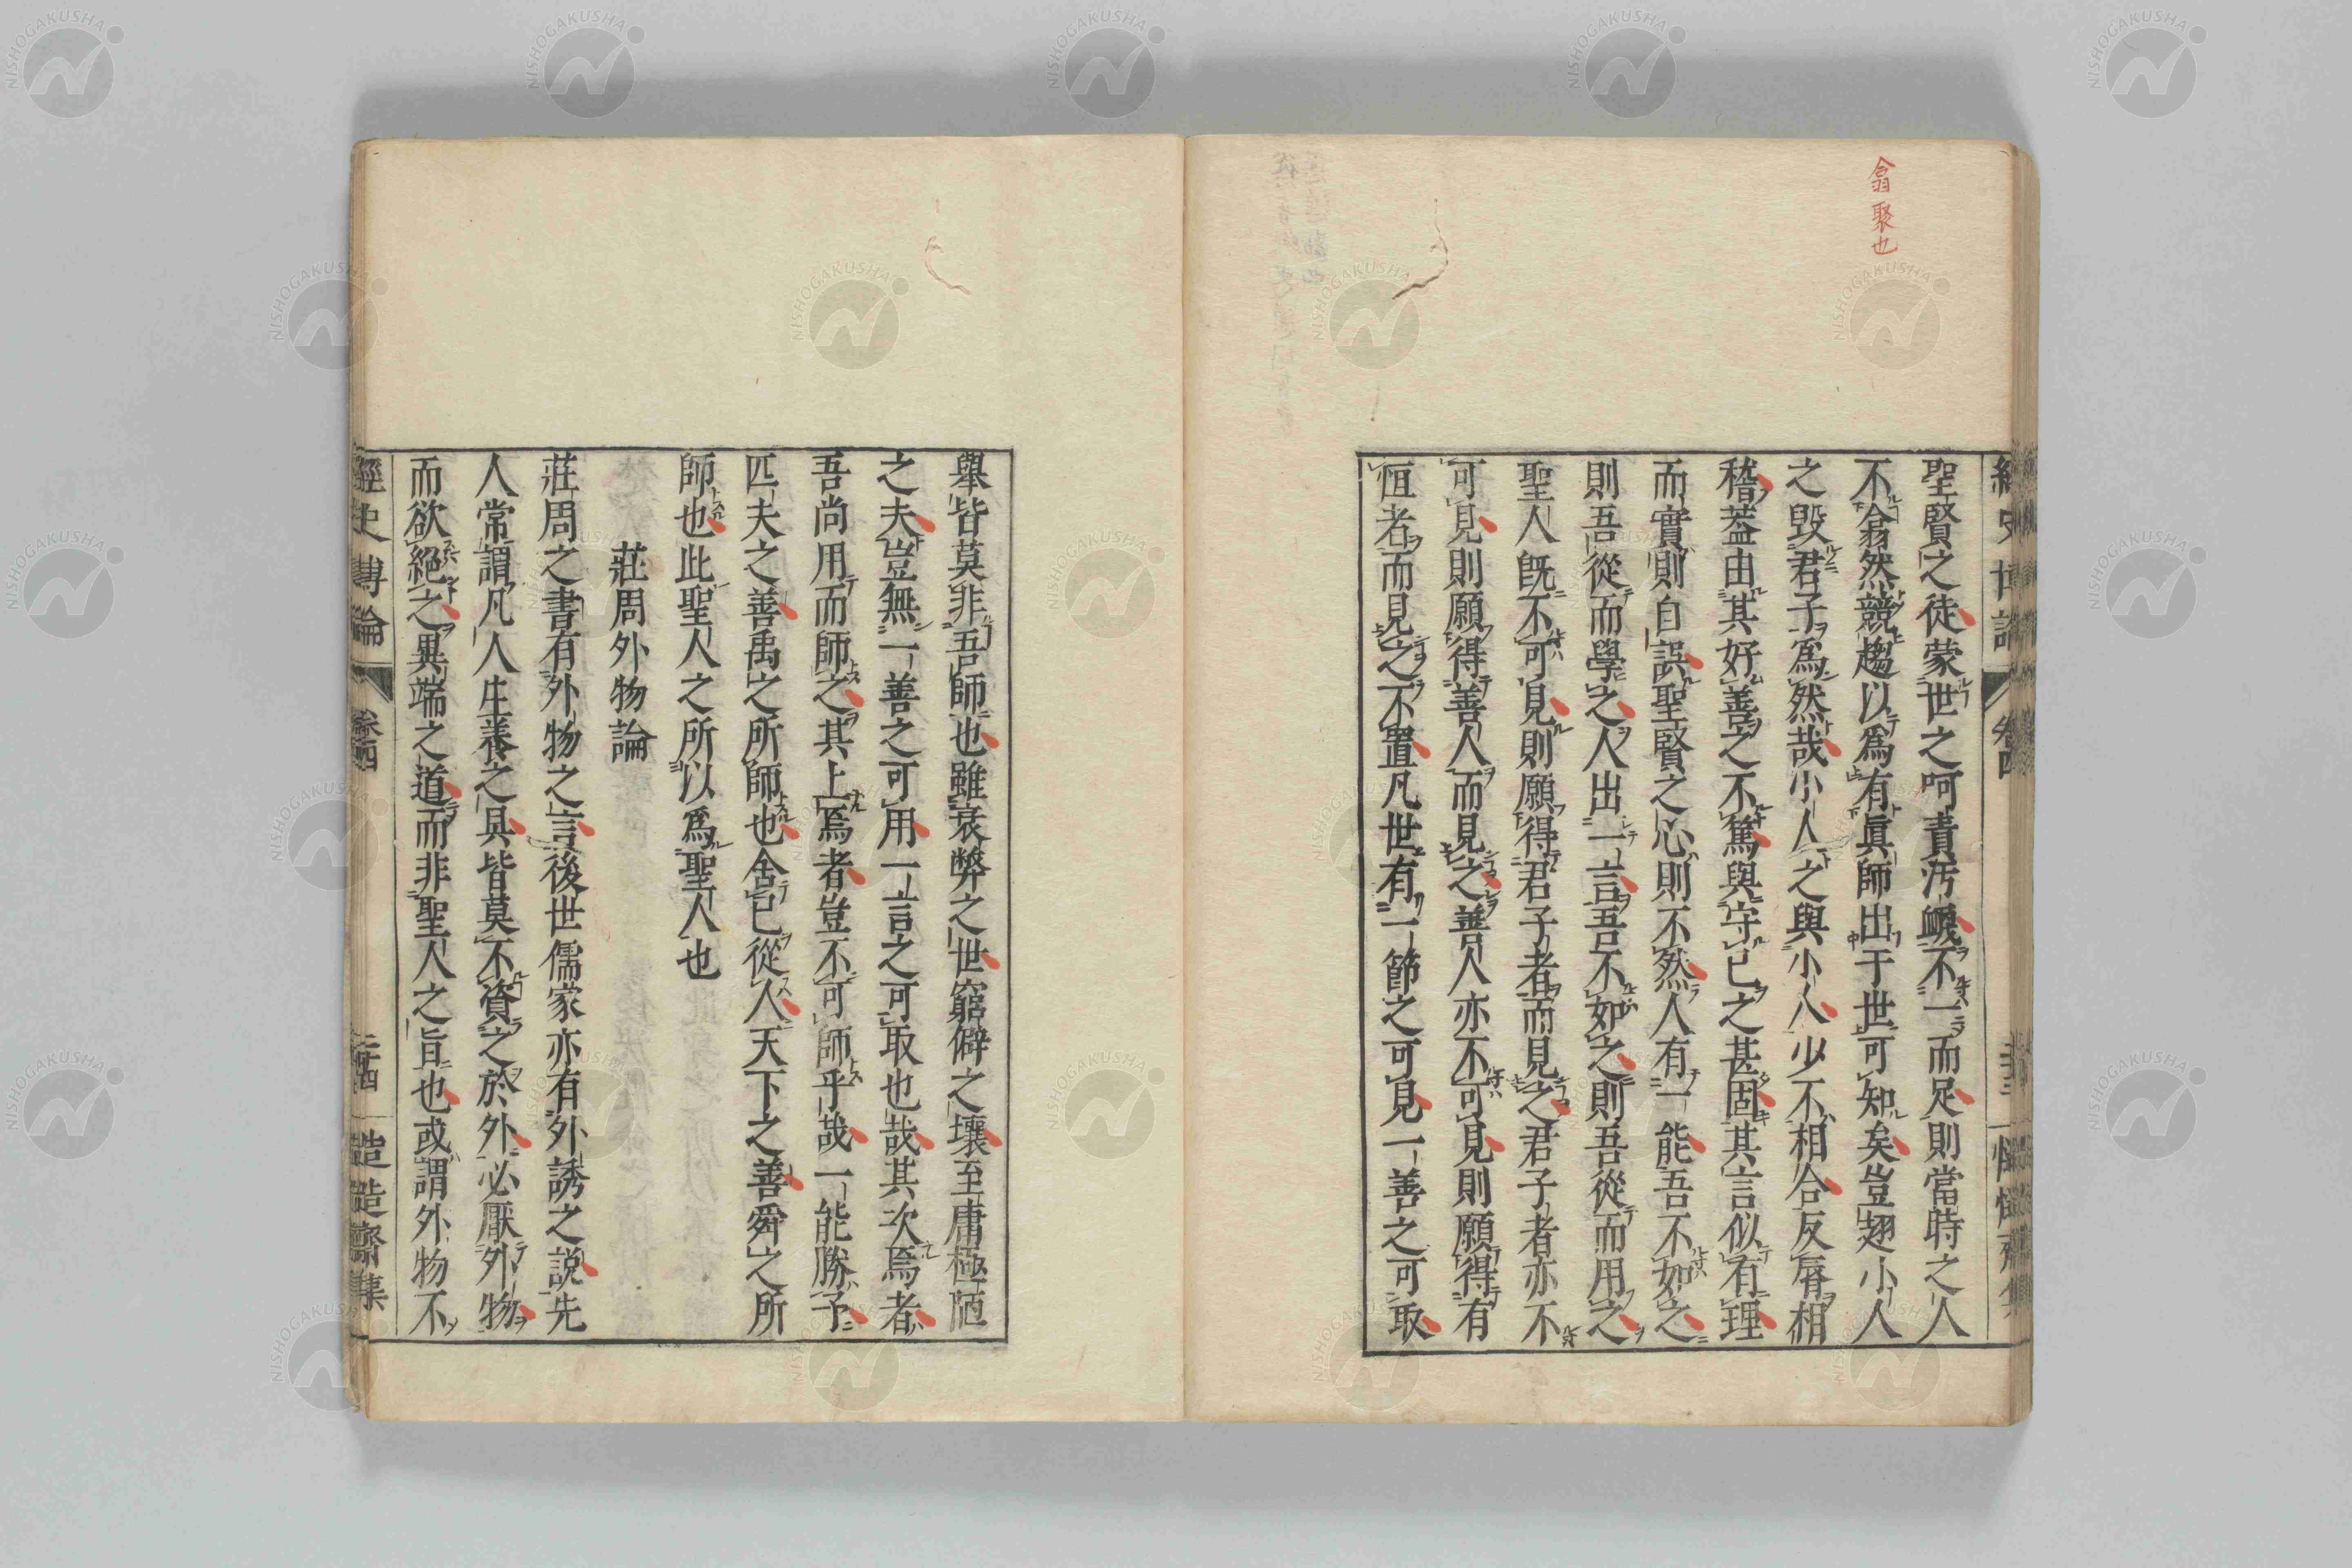 翕聚也
聖賢之徒蒙世之呵責汚衊不一而足則當時之人
不翕然競趨以爲有眞師出于世可知矣豈翅小人
之毀君子爲然哉小人之與小人少不相合反辱相
稽蓋由其好善之不篤與守已之甚固其言似有理
而實則自誤聖賢之心則不然人有一能吾不如之
則吾從而學之人出一言吾不如之則吾從而用之
聖人既不可見則願得君子者而見之君子者亦不
可見則願得善人而見之善人亦不可見則願得有
恒者而見之不置凡世有一節之可見一善之可取
舉皆莫非吾師也雖衰弊之世窮僻之壤至庸極陋
之夫豈無一善之可用一言之可取也哉其次焉者
吾尚用而師之其上焉者豈不可師乎哉一能勝予
匹夫之善禹之所師也舍已從人天下之善舜之所
師也此聖人之所以爲聖人也
莊周外物論
莊周之書有外物之言後世儒家亦有外誘之説先
人常謂凡人生養之具皆莫不資之於外必厭外物
而欲絕之異端之道而非聖人之旨也或謂外物不
經史博論 卷四 二十四 慥慥齋集
NISHOGAKUSHA